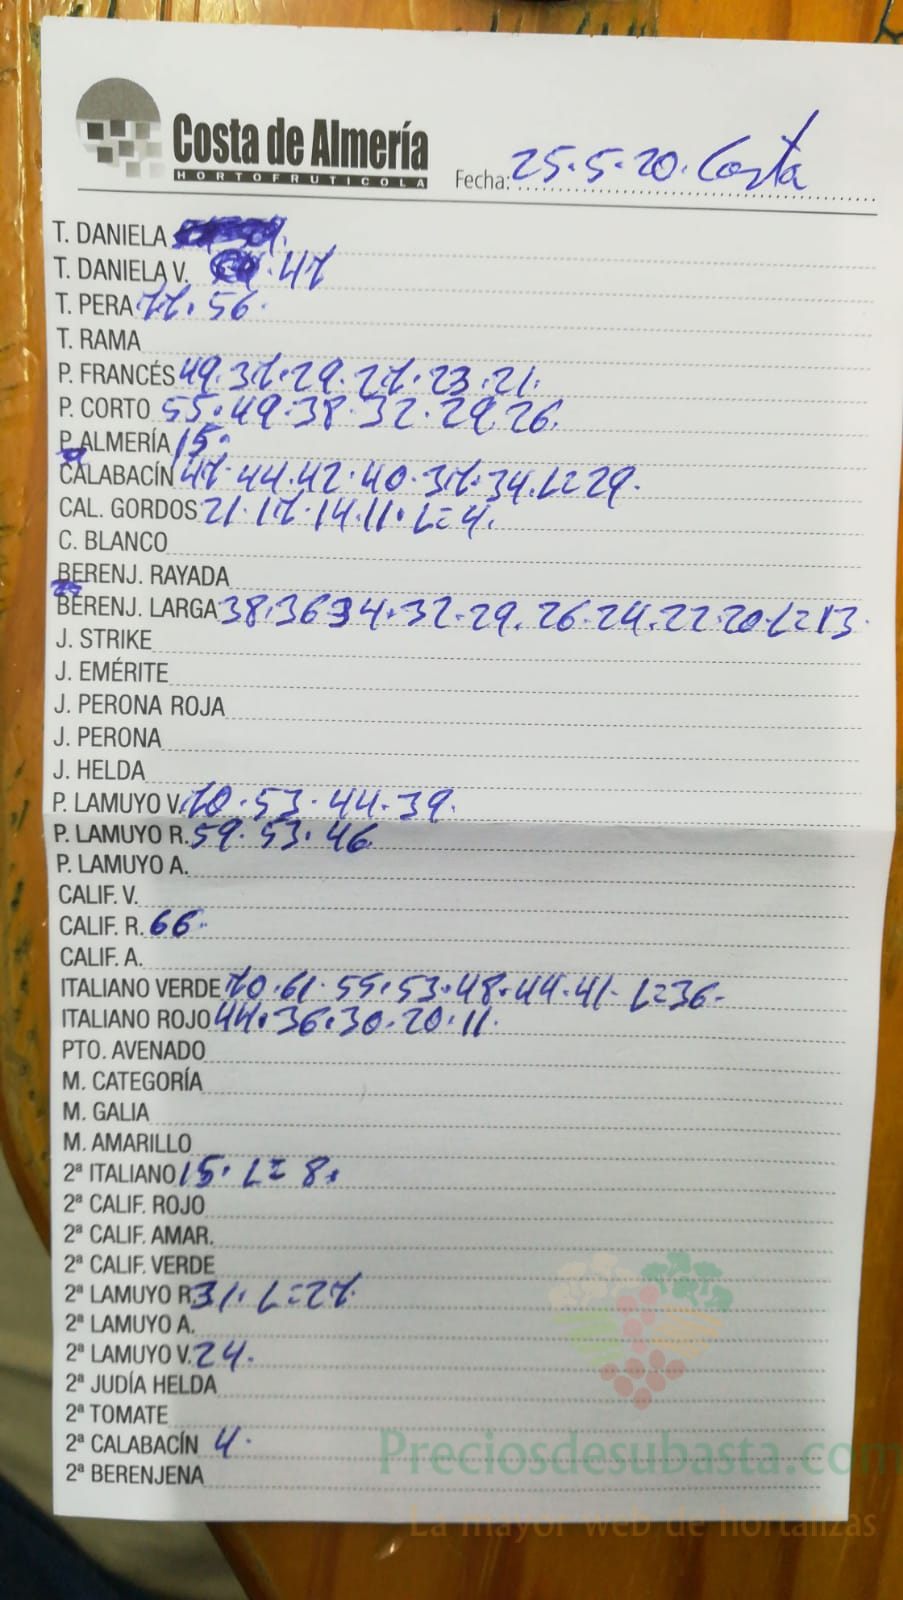 Costa de Almería
HORTOFRUTICOLA
Fecha: 25.5.20. Costa
T. DANIELA
T. DANIELA V. 47
T. PERA 77. 56.
T. RAMA
P. FRANCÉS 49. 37. 29. 27. 23. 21.
P. CORTO 55. 49. 38. 32. 29. 26.
P. ALMERÍA 15.
CALABACÍN 47. 44. 42. 40. 37. 34. L=29.
CAL. GORDOS 21. 17. 14. 11. L=4.
C. BLANCO
BERENJ. RAYADA
BERENJ. LARGA 38. 36. 34. 32. 29. 26. 24. 22. 20. L=13.
J. STRIKE
J. EMÉRITE
J. PERONA ROJA
J. PERONA
J. HELDA
P. LAMUYO V. 70. 53. 44. 39.
P. LAMUYO R. 59. 53. 46
P. LAMUYO A.
CALIF. V.
CALIF. R. 66.
CALIF. A.
ITALIANO VERDE 70. 61. 55. 53. 48. 44. 41. L=36.
ITALIANO ROJO 44. 36. 30. 20. 11.
PTO. AVENADO
M. CATEGORÍA
M. GALIA
M. AMARILLO
2ª ITALIANO 15. L=8.
2ª CALIF. ROJO
2ª CALIF. AMAR.
2ª CALIF. VERDE
2ª LAMUYO R. 31. L=27.
2ª LAMUYO A.
2ª LAMUYO V. 24.
2ª JUDÍA HELDA
2ª TOMATE
2ª CALABACÍN 4.
2ª BERENJENA
Preciosdesubasta.com
La mayor web de hortalizas